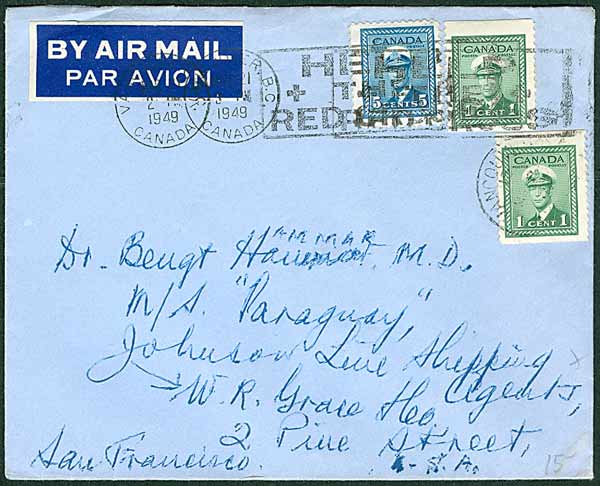 BY AIR MAIL
PAR AVION
1949
CANADA
R. B.C.
1949
CANADA
HE
RED CROSS
CANADA
5 CENTS 5
CANADA
1 CENT
CANADA
1 CENT 1
VANCOU
Dr. Bengt Hammar, M.D.
M/S. "Paraguay,"
Johnson Line Shipping
Agents,
W. R. Grace & Co
2 Pine Street,
San Francisco. U.S.A.
15